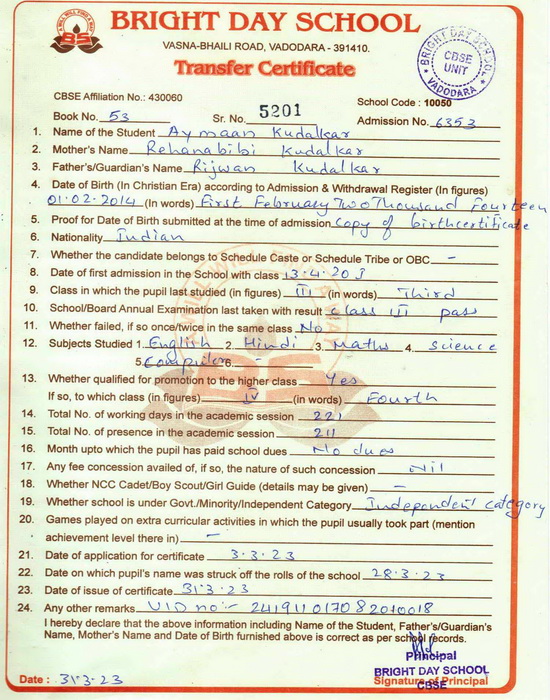 BRIGHT DAY SCHOOL
VASNA-BHAILI ROAD, VADODARA - 391410.
Transfer Certificate
BRIGHT DAY SCHOOL
CBSE
UNIT
VADODARA
CBSE Affiliation No.: 430060
School Code : 10050
Book No. 53 Sr. No. 5201 Admission No. 6353
1. Name of the Student Aymaan Kudalkar
2. Mother's Name Rehanabibi Kudalkar
3. Father's/Guardian's Name Rijwan Kudalkar
4. Date of Birth (In Christian Era) according to Admission & Withdrawal Register (In figures)
01.02.2014 (In words) First February Two Thousand Fourteen
5. Proof for Date of Birth submitted at the time of admission Copy of birthcertificate
6. Nationality Indian
7. Whether the candidate belongs to Schedule Caste or Schedule Tribe or OBC -
8. Date of first admission in the School with class 13.4.20
9. Class in which the pupil last studied (in figures) III (in words) Third
10. School/Board Annual Examination last taken with result class III pass
11. Whether failed, if so once/twice in the same class No
12. Subjects Studied 1. English 2. Hindi 3. Maths 4. science
5. Computer 6. -
13. Whether qualified for promotion to the higher class Yes
If so, to which class (in figures) IV (in words) Fourth
14. Total No. of working days in the academic session 221
15. Total No. of presence in the academic session 211
16. Month upto which the pupil has paid school dues No dues
17. Any fee concession availed of, if so, the nature of such concession Nil
18. Whether NCC Cadet/Boy Scout/Girl Guide (details may be given) -
19. Whether school is under Govt./Minority/Independent Category Independent category
20. Games played on extra curricular activities in which the pupil usually took part (mention
achievement level there in) -
21. Date of application for certificate 3.3.23
22. Date on which pupil's name was struck off the rolls of the school 28.3.23
23. Date of issue of certificate 31.3.23
24. Any other remarks UID no:- 241911017082010018
I hereby declare that the above information including Name of the Student, Father's/Guardian's
Name, Mother's Name and Date of Birth furnished above is correct as per school records.
Principal
BRIGHT DAY SCHOOL
CBSE
Date : 31.3.23 Signature of Principal